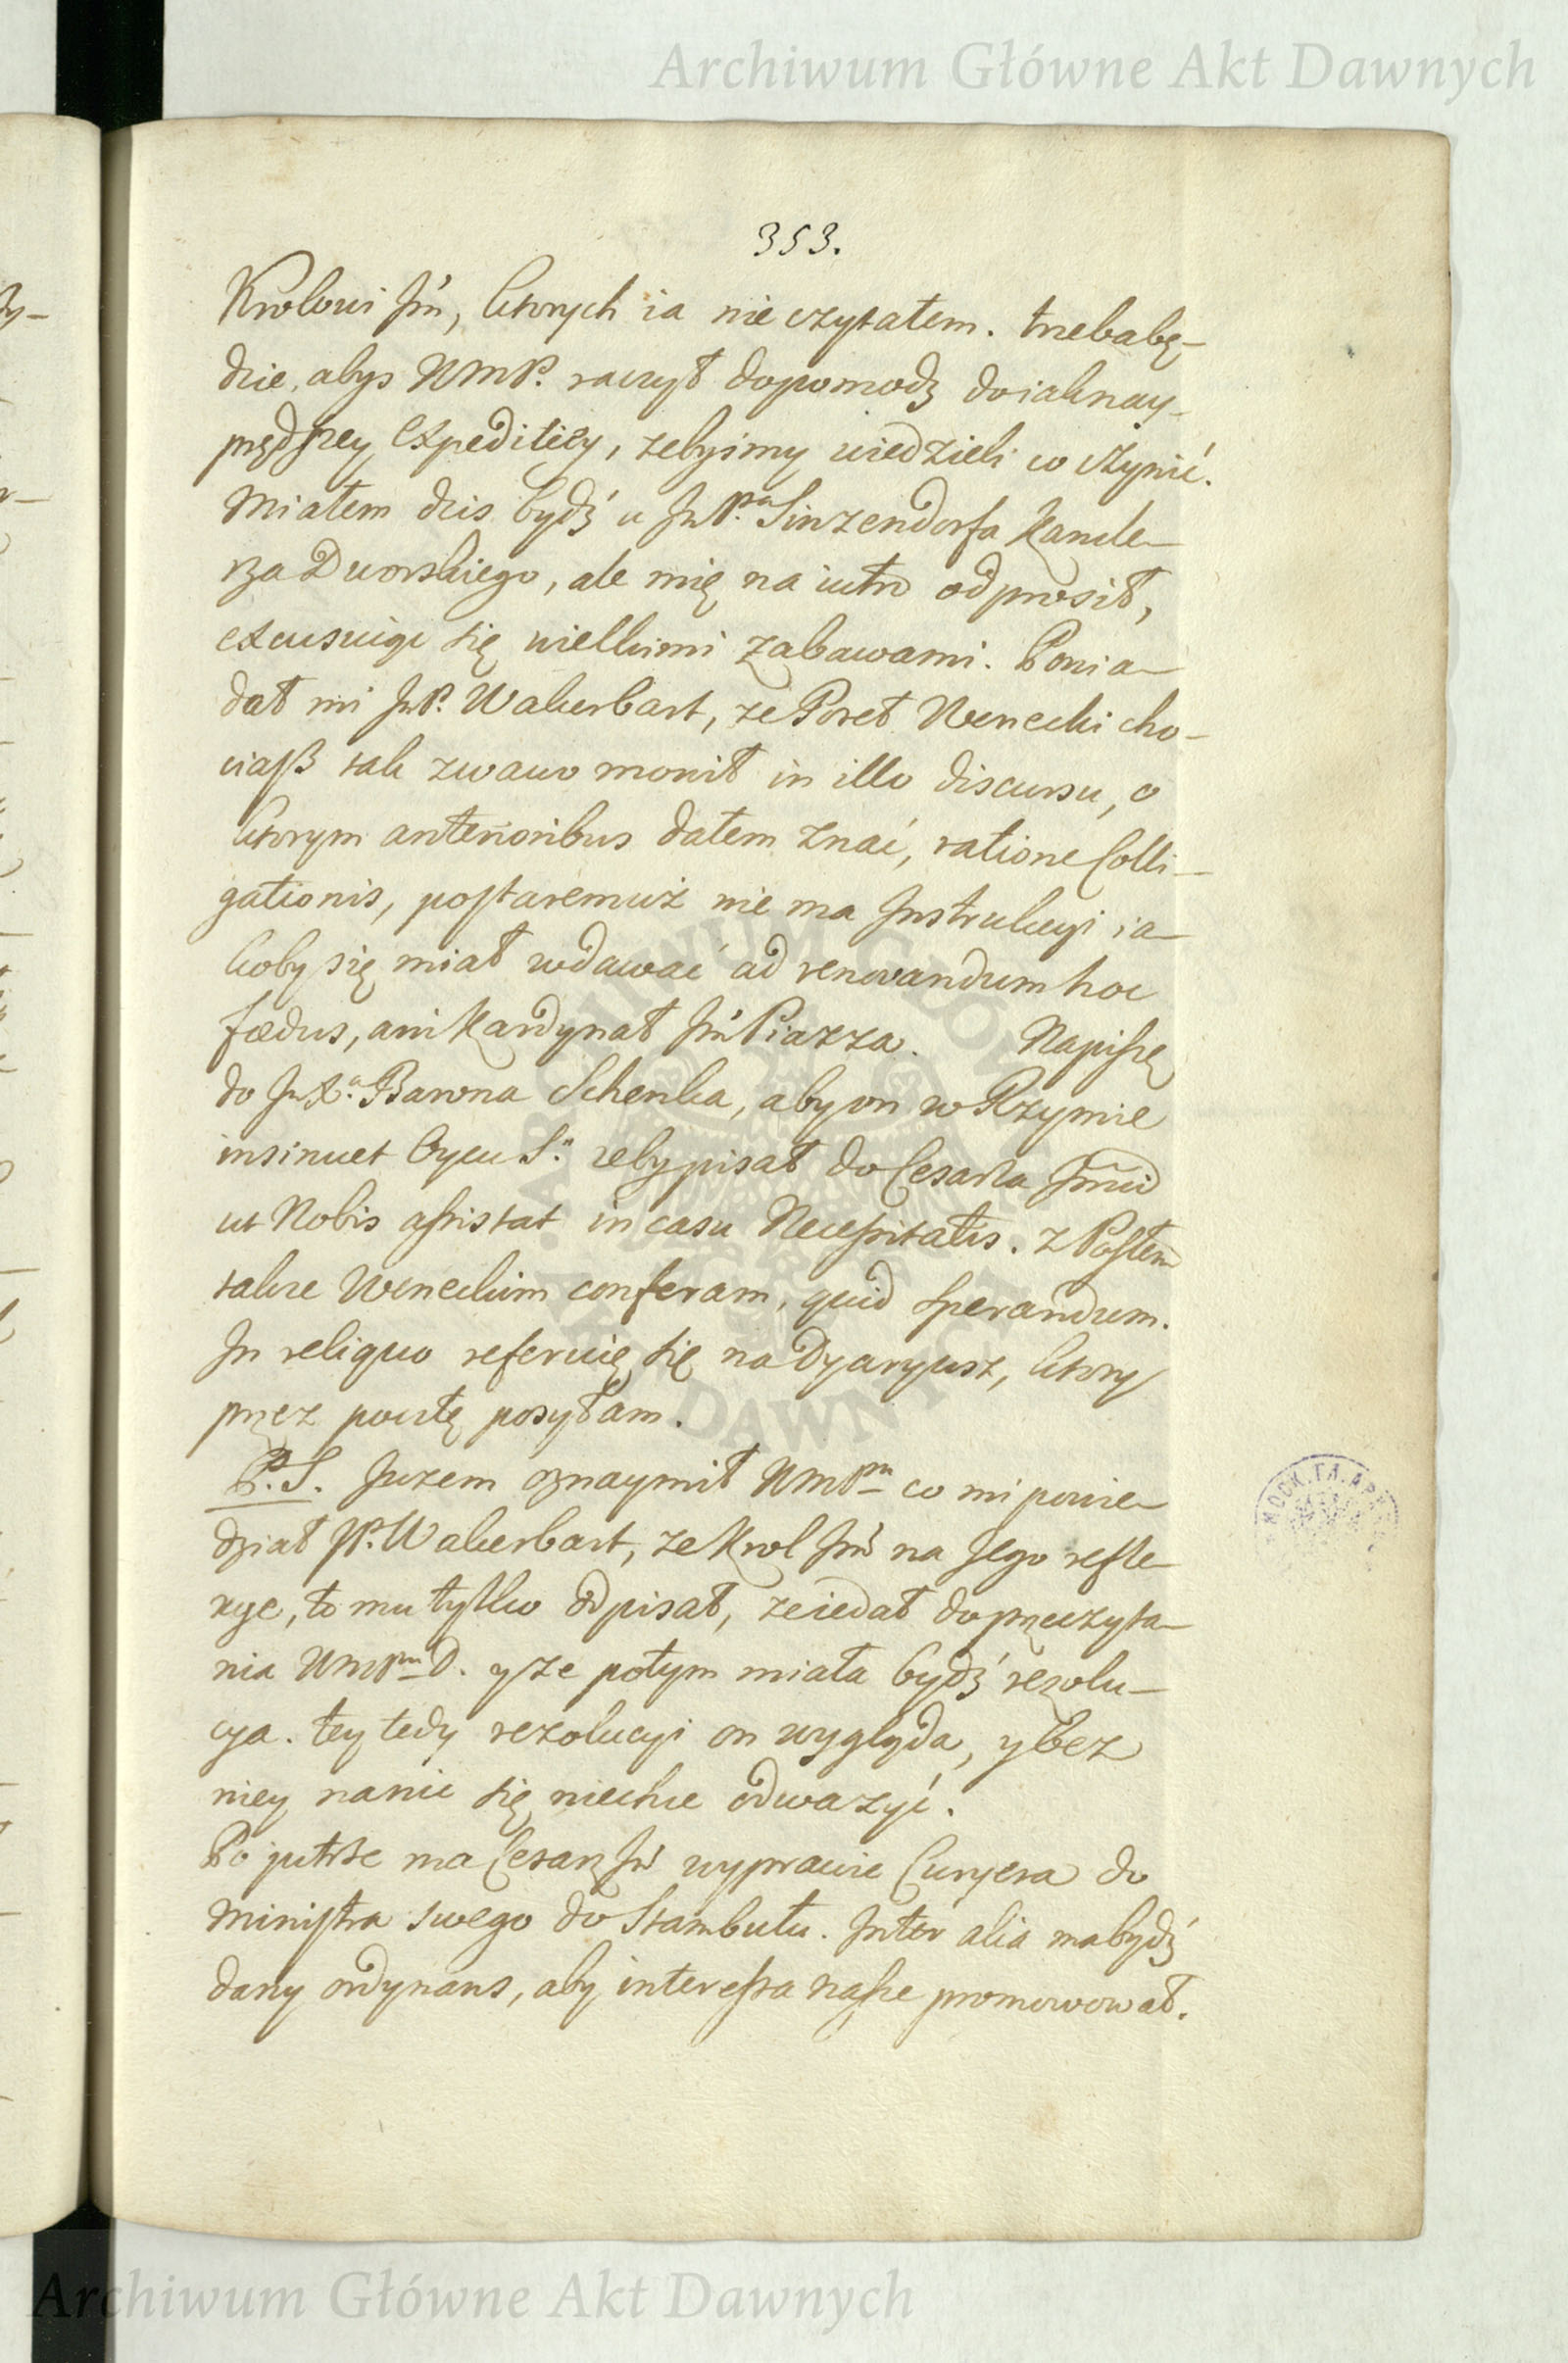 Archiwum Główne Akt Dawnych
353.
Krolowi Jm̃, ktorych ia nie czytałem. trzebabę-
dzie, abys WMP. raczył dopomodz do iaknay-
prędszey Expedit​iey, zebysmy wiedzieli co czynić.
Miałem dzis bydź u JnP.ᵃ Sinzendorfa Kancle-
rza Dworskiego, ale mię na iutro odprosił,
excusuiąc się wielkiemi zabawami. Powia-
dał mi JnP. Wakerbart, ze Poseł Wenecki cho-
ciaß tak zwawo mowił in illo discursu, o
ktorym anterioribus dałem znać, ratione Colli-
gationis, postaremuż nie ma Instrukcyi ia-
koby się miał wdawać ad renovandum hoc
fœdus, ani Kardynał Jm̃ Piazza. Napiszę
do JnX.ᵃ Barona Schenka, aby on w Rzymie
insinuet Oycu S.ᵘ zeby pisał do Cesarza Jm̃ci
ut Nobis assistat in casu Necessitatis. Z Posłem
takze Weneckim conferam, quid sperandum.
In reliquo referuię się na Dyaryusz, ktory
przez pocztę posyłam.
P.S. Juzem oznaymił WMPⁿ co mi powie-
dział JP. Wakerbart, ze Krol Jm̃ na Jego refle-
xye, to mu tylko odpisał, ze ie dał do przeczyta-
nia WMPⁿ D. y ze potym miała bydź rezolu-
cya. tey tedy rezolucyi on wygląda, y bez
niey nanic się niechce odwazyć.
Po jutrze ma Cesarz Jm̃ wyprawic Curyera do
Ministra swego do Stambułu. Inter alia ma bydź
dany ordynans, aby interessa nasze promowował.
МОСК.ГЛ.АРХ
ARCHIWUM GŁÓWNE AKT DAWNYCH
Archiwum Główne Akt Dawnych